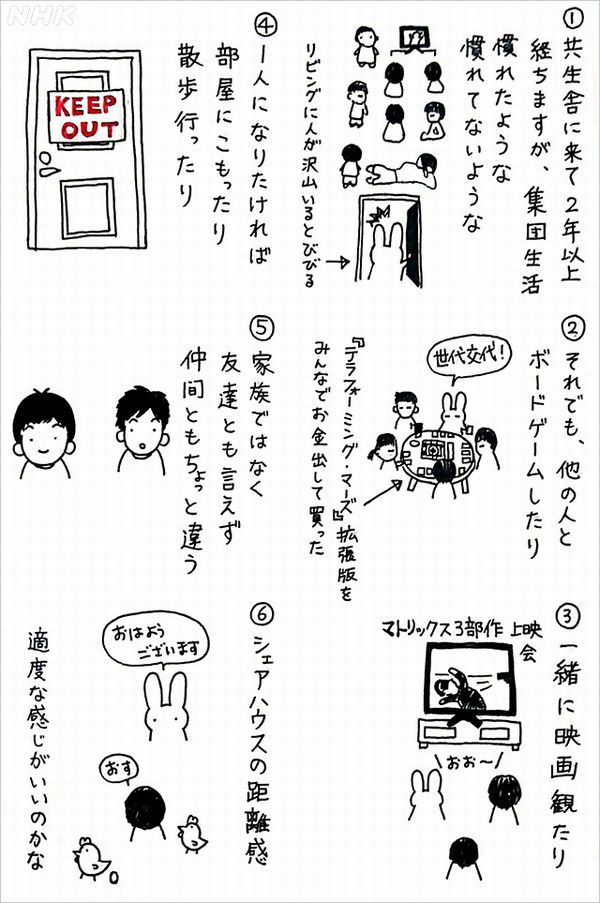 NHK
①共生舎に来て2年以上
経ちますが、集団生活
慣れたような
慣れてないような
リビングに人が沢山いるとびびる
②それでも、他の人と
ボードゲームしたり
世代交代!
『テラフォーミング・マーズ』拡張版を
みんなでお金出して買った
③一緒に映画観たり
マトリックス3部作 上映会
おお〜
④1人になりたければ
部屋にこもったり
散歩行ったり
KEEP
OUT
⑤家族ではなく
友達とも言えず
仲間ともちょっと違う
⑥シェアハウスの距離感
おはよう
ございます
おす
適度な感じがいいのかな